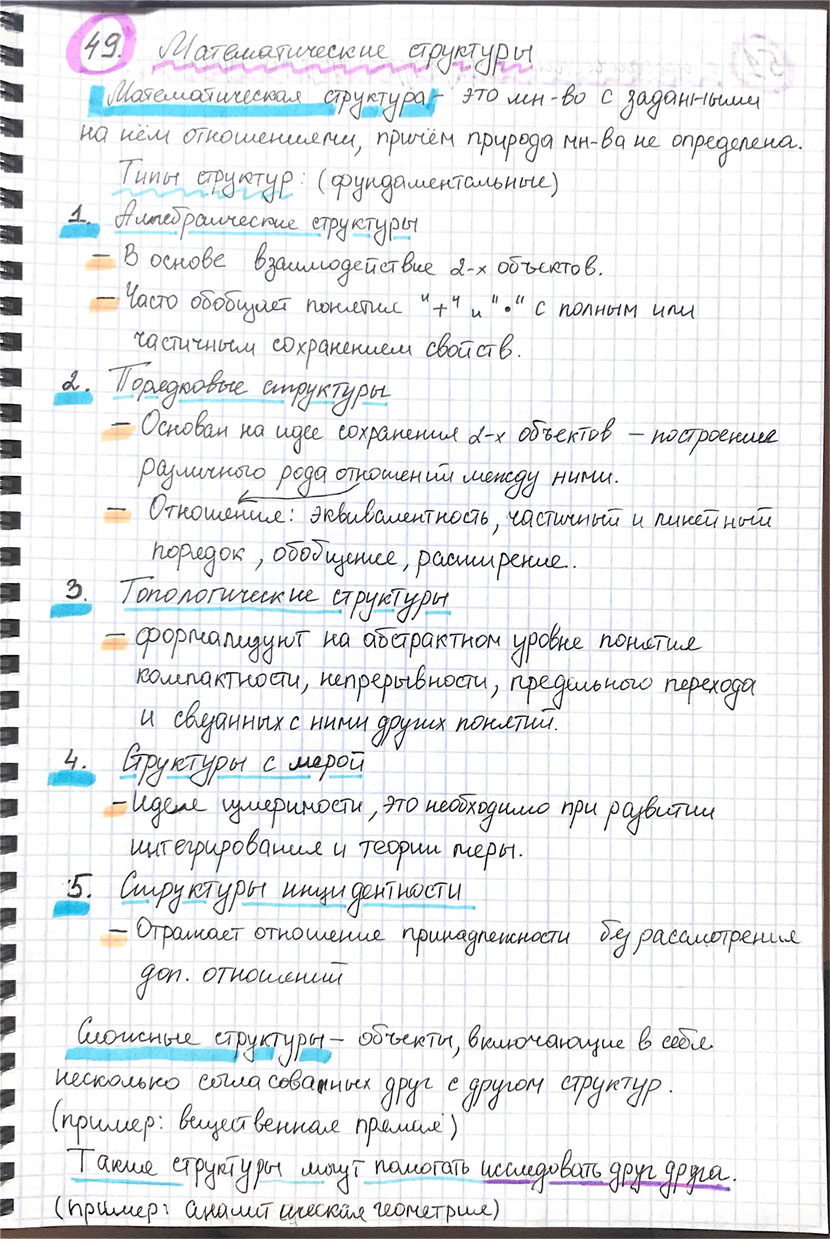 49. Математические структуры
Математическая структура - это мн-во с заданными
на нём отношениями, причём природа мн-ва не определена.
Типы структур: (фундаментальные)
1. Алгебраические структуры
- В основе взаимодействие 2-х объектов.
- Часто обобщает понятия "+" и "•" с полным или
частичным сохранением свойств.
2. Порядковые структуры
- Основан на идее сохранения 2-х объектов - построение
различного рода отношений между ними.
- Отношения: эквивалентность, частичный и линейный
порядок, обобщение, расширение.
3. Топологические структуры
- формализуют на абстрактном уровне понятия
компактности, непрерывности, предельного перехода
и связанных с ними других понятий.
4. Структуры с мерой
- Идея измеримости, это необходимо при развитии
интегрирования и теории меры.
5. Структуры инцидентности
- Отражает отношение принадлежности без рассмотрения
доп. отношений
Сложные структуры - объекты, включающие в себя
несколько согласованных друг с другом структур.
(пример: вещественная прямая)
Такие структуры могут помогать исследовать друг друга.
(пример: аналитическая геометрия)